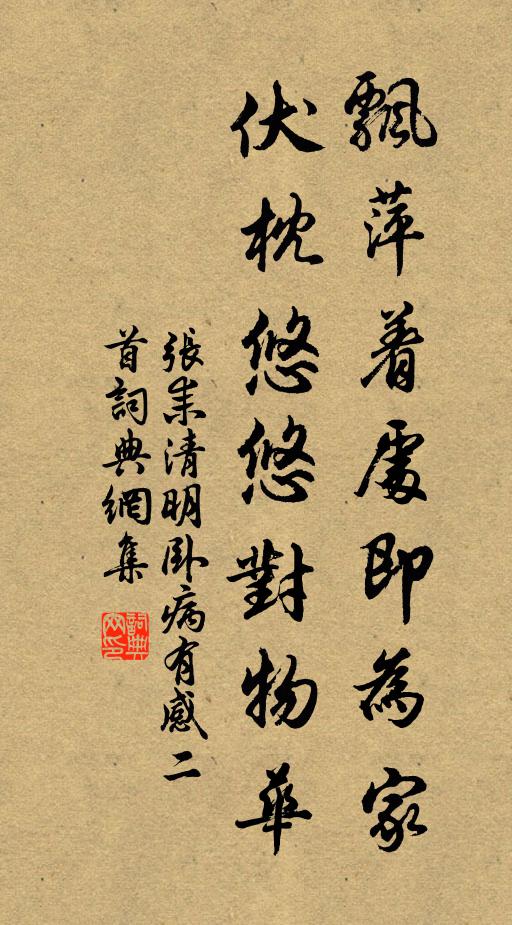 飄萍着處即為家
伏枕悠悠對物華
張耒清明卧病有感二
首詞典網集
詞典
網印